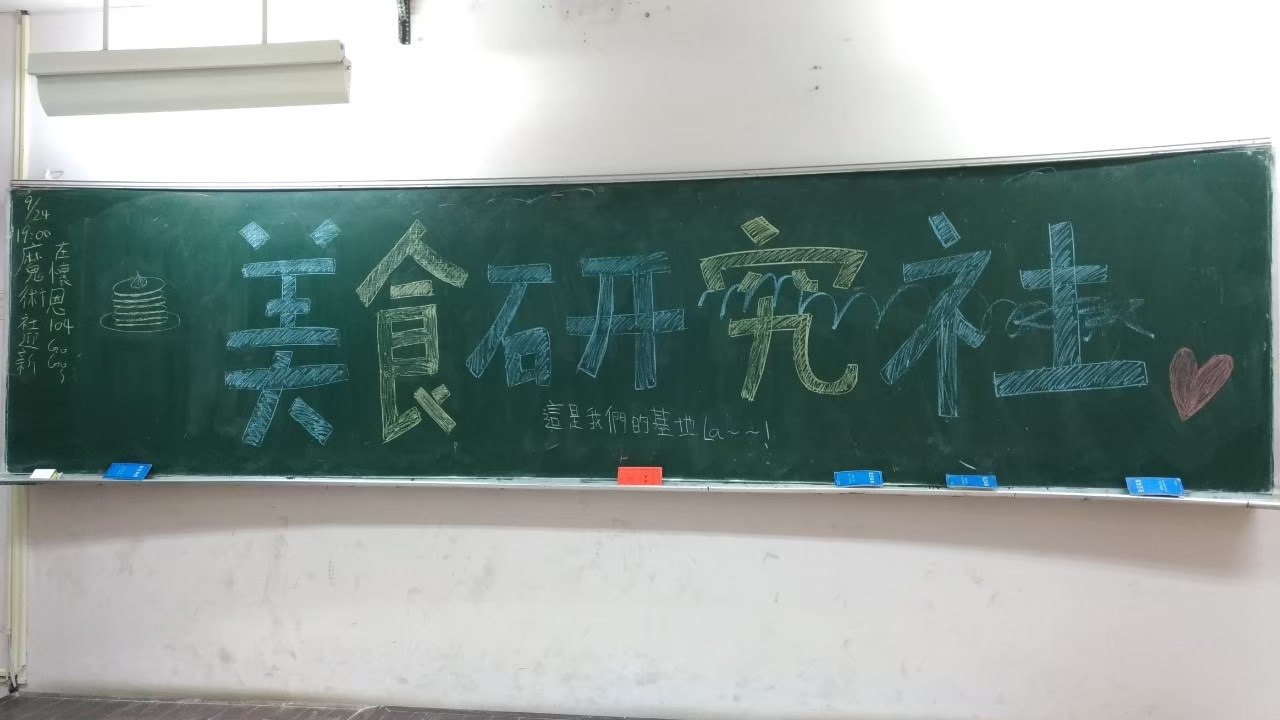 9/24
19:00
魔術社迎新
在懷恩104 GoGo~
美食研究社
這是我們的基地La~~!